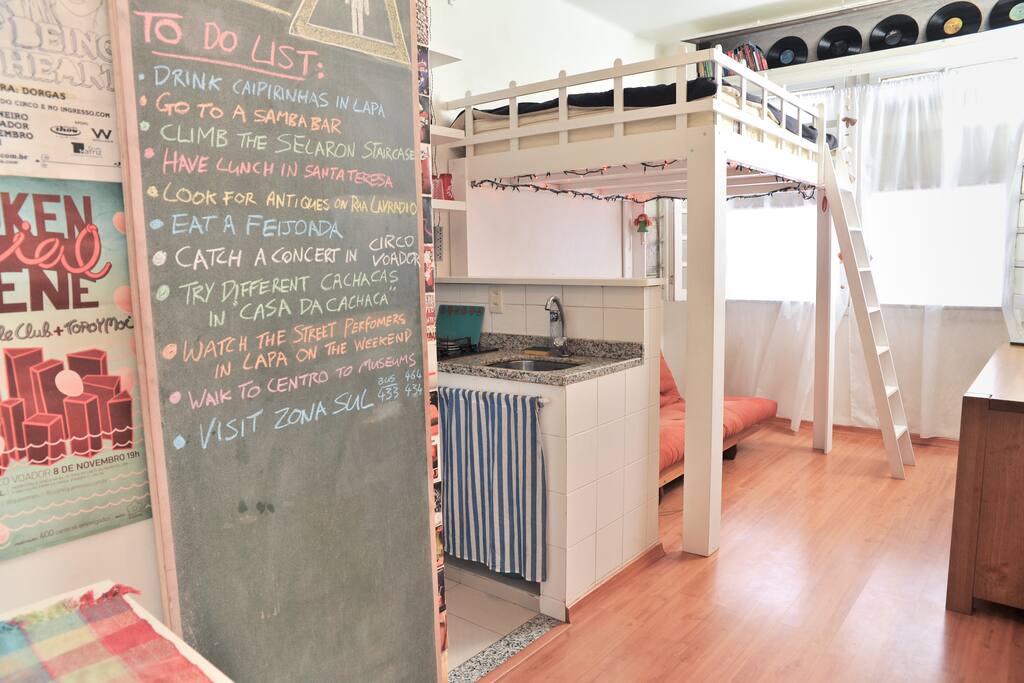 BEING
HEAN
RA: DORGAS
DO CIRCO E NO INGRESSO.COM
show
W
KEN
ENE
le Club + TOPOYMOC
CO VOADOR 8 DE NOVEMBRO 19h
TO DO LIST:
• DRINK CAIPIRINHAS IN LAPA
• GO TO A SAMBA BAR
• CLIMB THE SELARON STAIRCASE
• HAVE LUNCH IN SANTA TERESA
• LOOK FOR ANTIQUES ON RUA LAVRADIO
• EAT A FEIJOADA
• CATCH A CONCERT IN CIRCO
VOADOR
• TRY DIFFERENT CACHACAS
IN CASA DA CACHAÇA
• WATCH THE STREET PERFOMERS
IN LAPA ON THE WEEKEND
• WALK TO CENTRO TO MUSEUMS
• VISIT ZONA SUL BUS 464
433 434